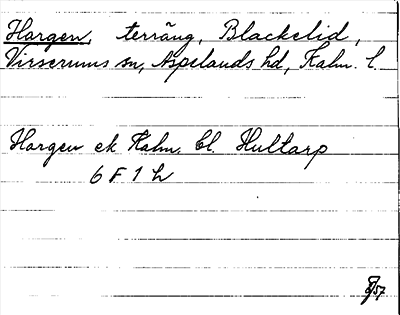 Horgen, terräng, Blackelid,
Virserums sn, Aspelands hd, Kalm. l.
Horgen ek Kalm. bl. Hultarp
6 F 1 h
57